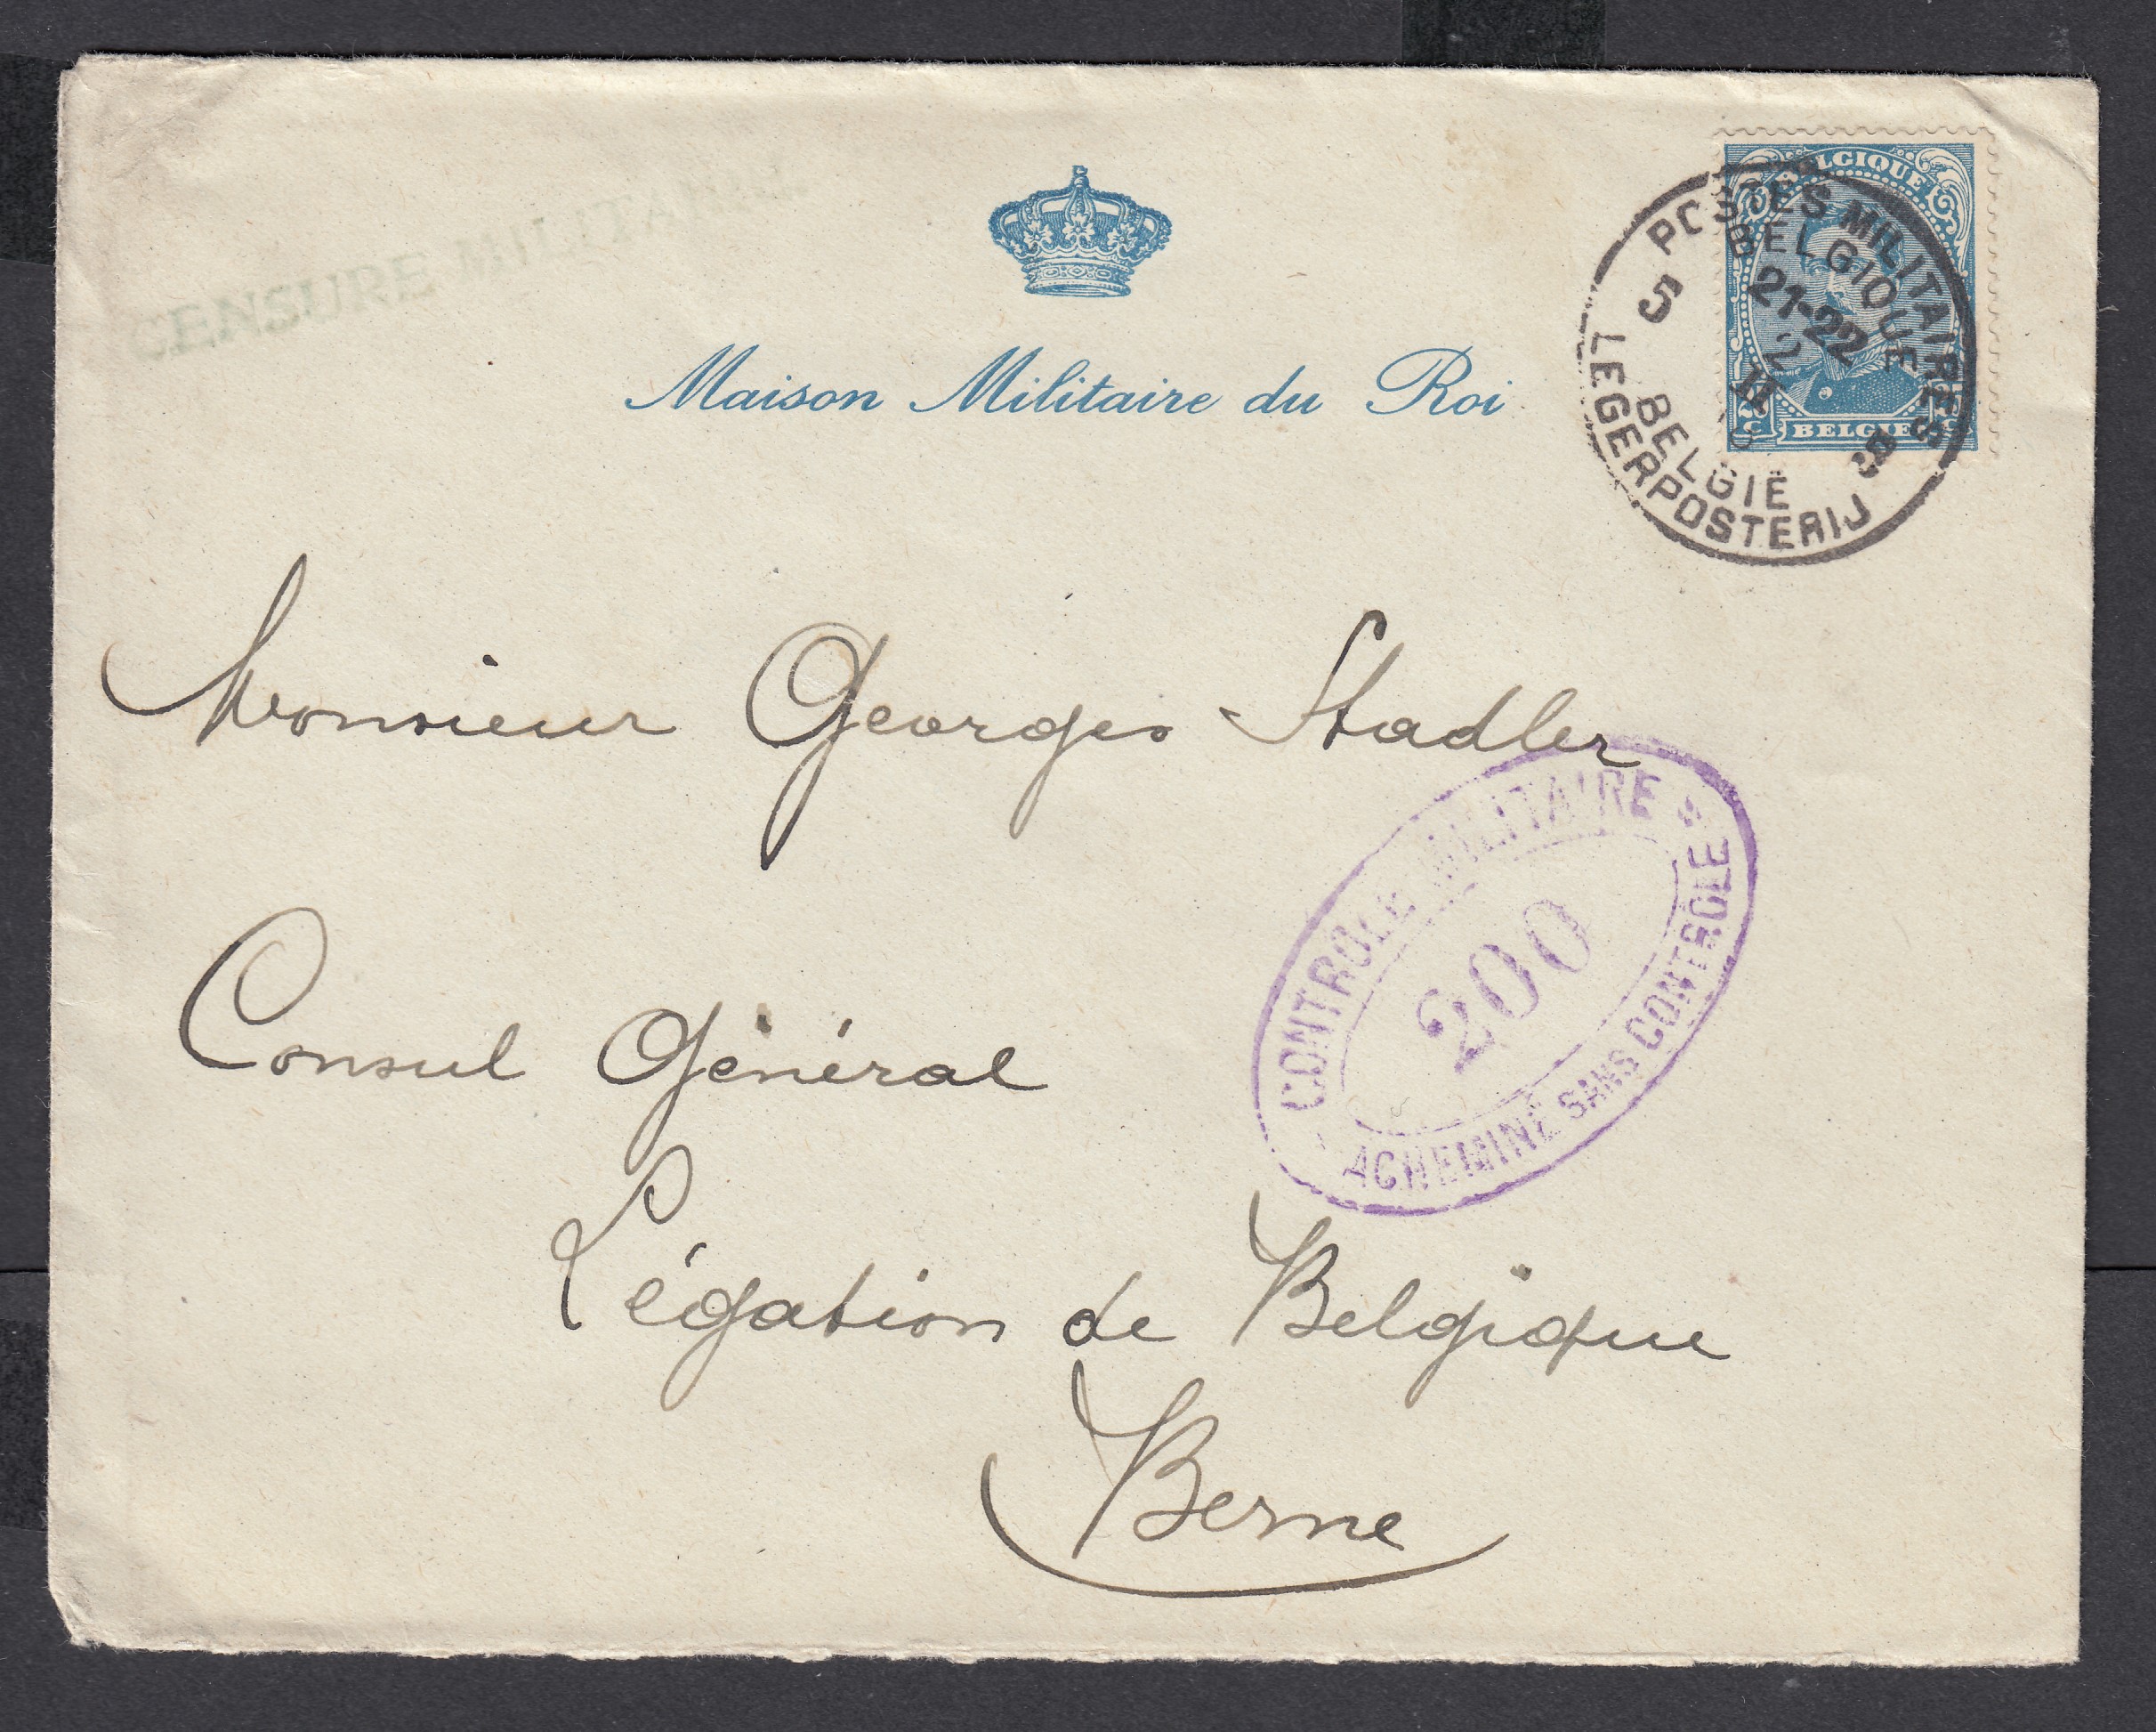 CENSURE MILITAIRE
Maison Militaire du Roi
BELGIQUE
BELGIË
POSTES MILITAIRES
BELGIQUE
5
21-22
2
II
5
BELGIË
LEGERPOSTERIJ
Monsieur Georges Stadler
CONTROLE MILITAIRE
200
ACHEMINÉ SANS CONTROLE
Consul Général
Légation de Belgique
Berne